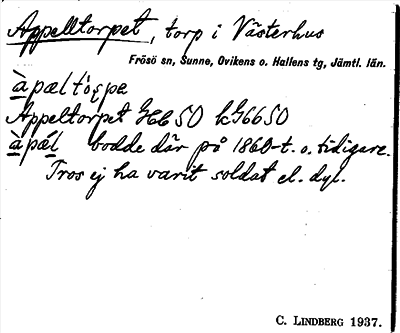 Appelltorpet, torp i Västerhus
Frösö sn, Sunne, Ovikens o. Hallens tg, Jämtl. län.
Appeltorpet Hb 50 kG66 50
àpál bodde där på 1860-t. o. tidigare.
Tros ej ha varit soldat el. dyl.
C. LINDBERG 1937.